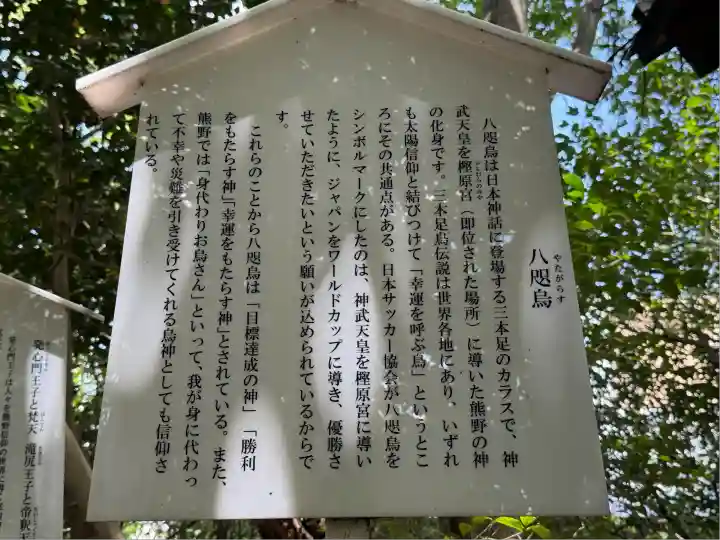 八咫烏
やたがらす
八咫烏は日本神話に登場する三本足のカラスで、神
武天皇を橿原宮(即位された場所)に導いた熊野の神
かしわらのみや
の化身です。三本足烏伝説は世界各地にあり、いずれ
も太陽信仰と結びつけて「幸運を呼ぶ烏」というとこ
ろにその共通点がある。日本サッカー協会が八咫烏を
シンボルマークにしたのは、神武天皇を橿原宮に導い
たように、ジャパンをワールドカップに導き、優勝さ
せていただきたいという願いが込められているからで
す。
これらのことから八咫烏は「目標達成の神」「勝利
をもたらす神」「幸運をもたらす神」とされている。また、
熊野では「身代わりお烏さん」といって、我が身に代わっ
て不幸や災難を引き受けてくれる烏神としても信仰さ
れている。
発心門王子と梵天 滝尻王子と帝釈天
発心門王子は人々を熊野信仰の世界に導く